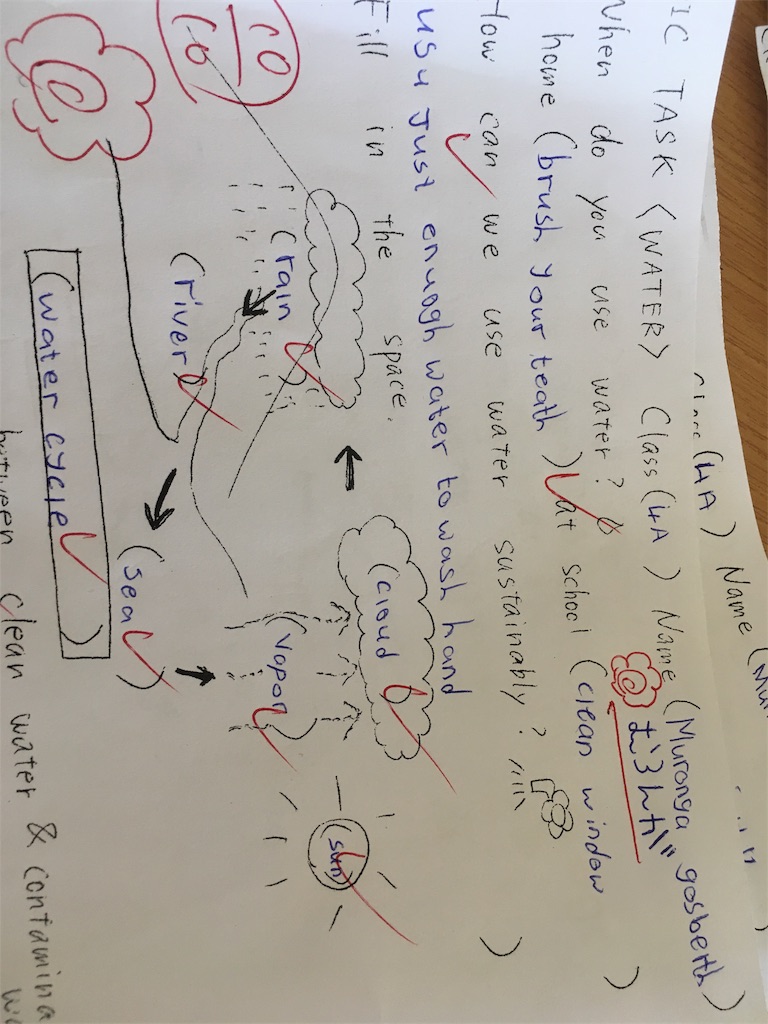 IC TASK <WATER> Class (4A) Name (Muronga gosberth)
When do you use water?
home (brush your teath) at school (clean window)
How can we use water sustainably?
usu just enuogh water to wash hand
Fill in the space.
(rain
(river)
(sea)
(Vapor
(cloud
(sun)
(water cycle)
between clean water & contamina
10
10
Class (4A) Name (Mur